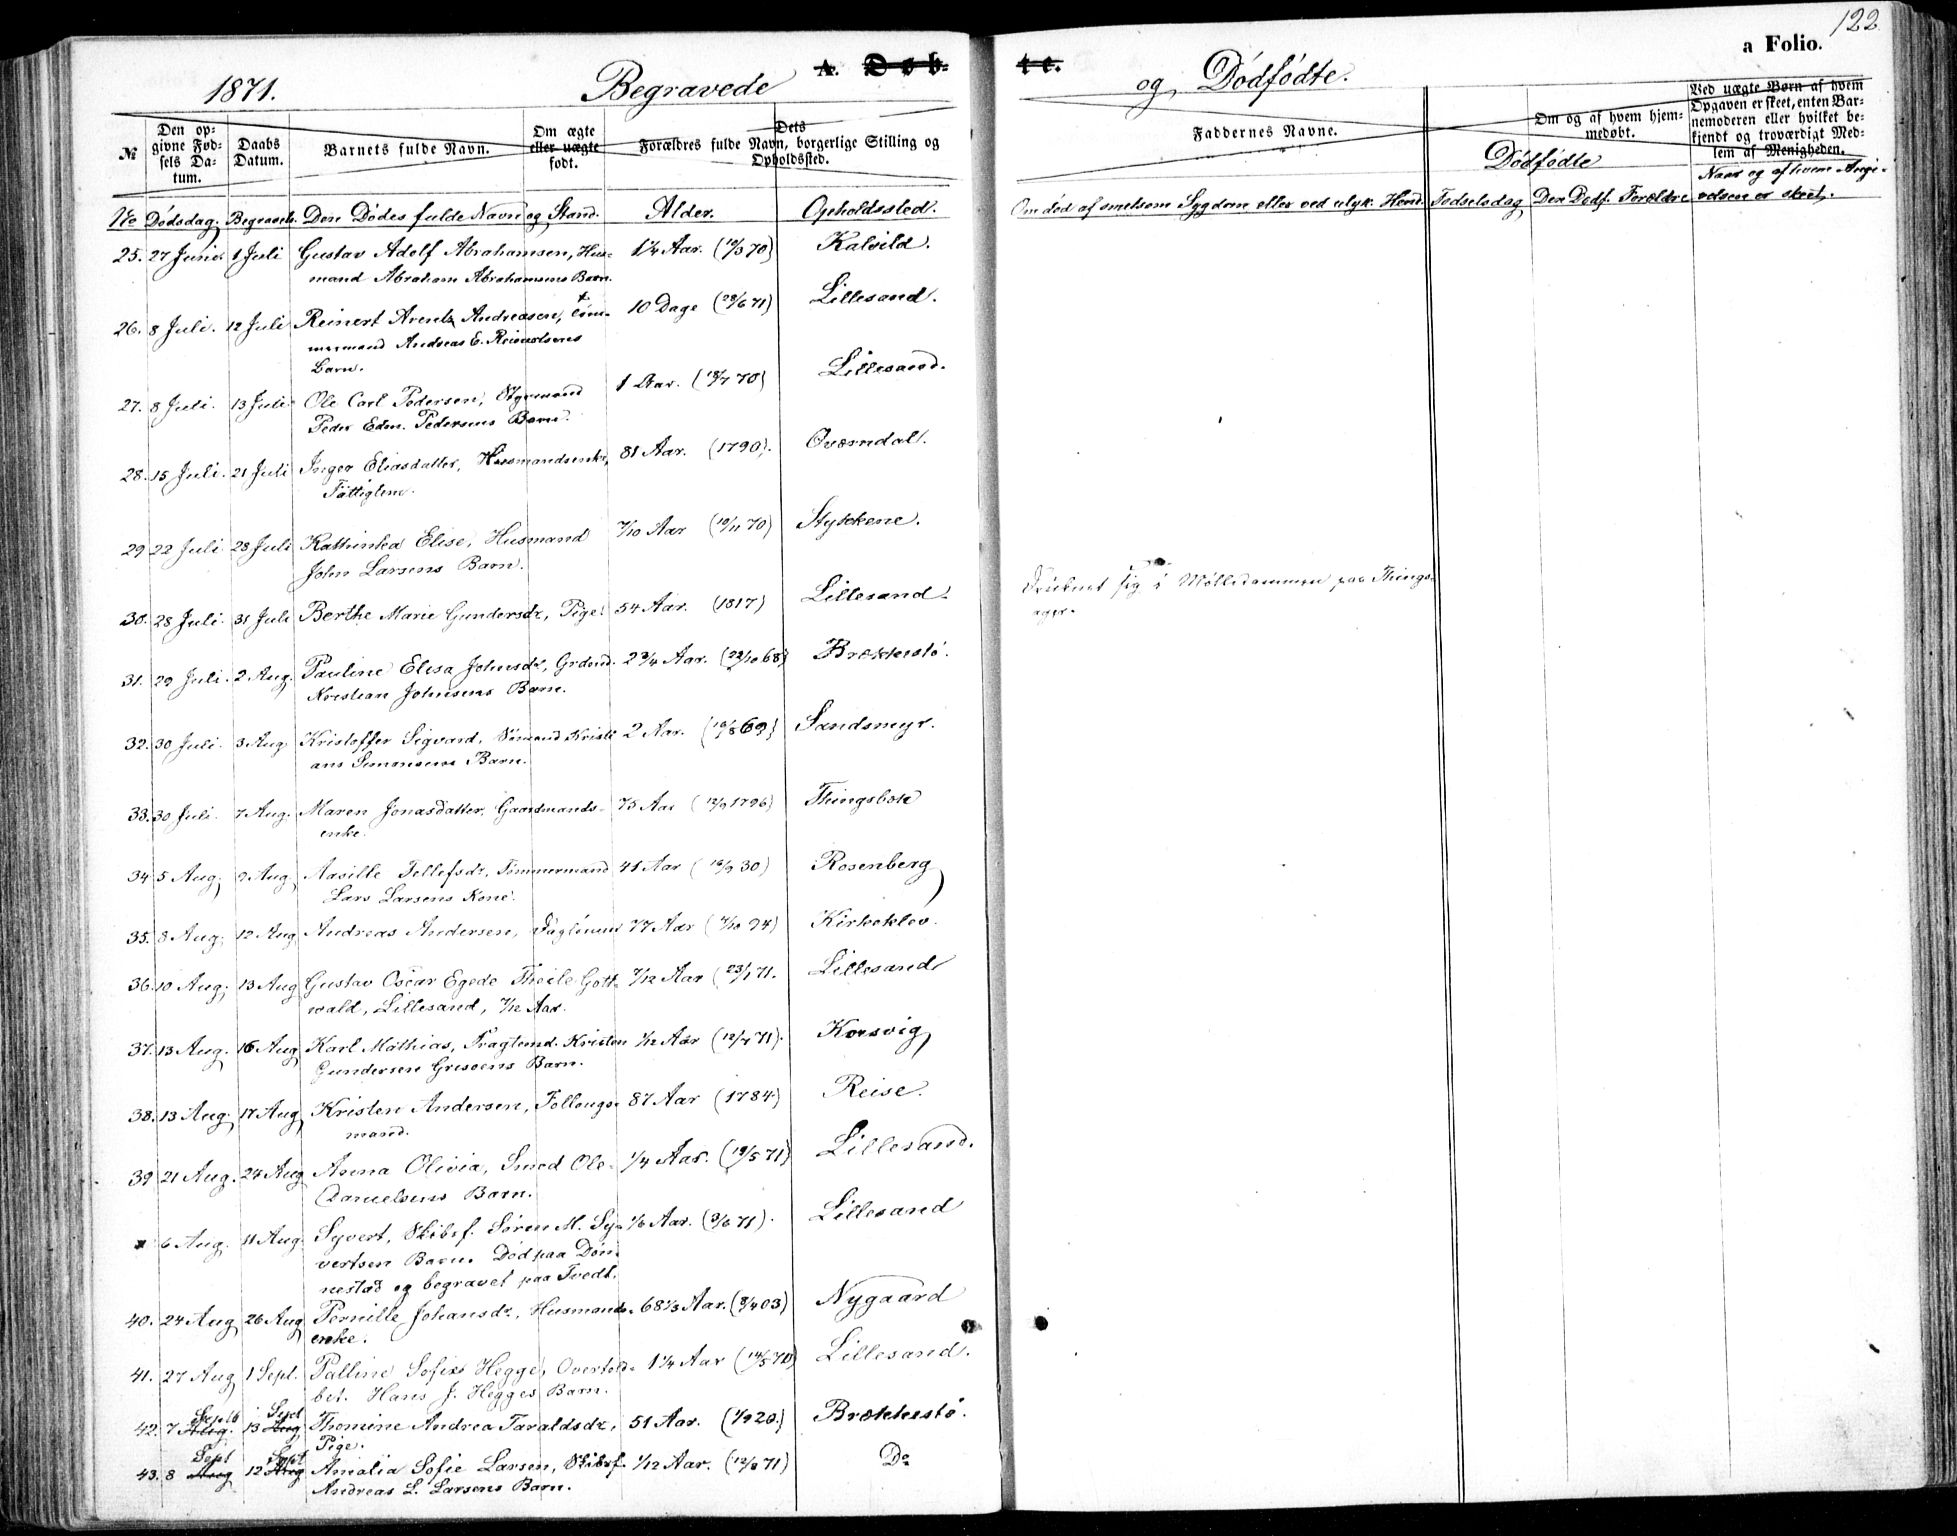 122
a Folio.
1871. Begravede A. Døb- te. og Dødfødte.
№ Den opgivne Fødsels Datum. Daabs Datum. Barnets fulde Navn. Om ægte eller uægte født. Dets Forældres fulde Navn, borgerlige Stilling og Opholdssted. Faddernes Navne. Om og af hvem hjemmedøbt. Ved uægte Børn af hvem Opgaven er skeet, enten Barnemoderen eller hvilket bekjendt og troværdigt Medlem af Menigheden.
Dødfødte
No Dødsdag. Begravels. Den Dødes fulde Navn og Stand. Alder. Opholdssted. Om død af smitsom Sygdom eller ved ulyk. Hend. Fødselsdag Den Dødf. Forældre Naar og af hvem Angivelsen er skeet.
25. 27 Juni. 1 Juli Gustav Adolf Abrahamsen, Hus- 1¼ Aar. (19/3 70) Kalvild.
mand Abraham Abrahamsens Barn.
26. 8 Juli. 12 Juli Reinert Arentz Andreasen, Töm- 10 Dage (28/6 71) Lillesand.
mermand Andreas E. Reinertsens
Barn.
27. 8 Juli. 13 Juli Ole Carl Pedersen, Styrmand 1 Aar. (18/7 70) Lillesand.
Peder Edm. Pedersens Barn.
28. 15 Juli. 21 Juli Inger Eliasdatter, Husmandsenke, 81 Aar. (1790). Oværndal.
Fattiglem.
29 22 Juli 28 Juli Kathinka Elise, Husmand 7/10 Aar (19/11 70) Stykkene.
John Larsens Barn.
30. 28 Juli. 31 Juli Berthe Marie Gundersdr, Pige. 54 Aar. (1817) Lillesand. Druknet sig i Mølledammen paa Things-
ager.
31. 29 Juli. 2 Aug. Pauline Elisa Johnsdr, Grdmd. 2 3/4 Aar. (22/10 68) Brækkestø.
Kristian Johnsens Barn.
32. 30 Juli. 3 Aug Kristoffer Sigvard, Sömand Kristi- 2 Aar. (19/8 69) Sandsmyr.
ans Simonsens Barn.
33. 30 Juli. 7 Aug. Maren Jonasdatter, Gaardmands- 75 Aar (12/9 1796) Thingsbok
enke.
34 5 Aug. 9 Aug Aasille Tellefsdr, Tømmermand 41 Aar (18/9 30) Rosenberg
Lars Larsens Kone.
35. 8 Aug. 12 Aug Andreas Andersen, Dagløner 77 Aar (7/10 94) Kirkeklev.
36. 10 Aug. 13 Aug Gustav Oscar Egede Theile Gott- 7/12 Aar (23/1 71. Lillesand
wald, Lillesand, 7/12 Aar.
37. 13 Aug. 16 Aug Karl Mathias, Fragtemd. Kristen 1/12 Aar (12/7 71). Korsvig
Gundersen Grisoens Barn.
38. 13 Aug. 17 Aug Kristen Andersen, Føllougs- 87 Aar (1784) Reise.
mand.
39 21 Aug. 24 Aug Anna Olivia, Smed Ole 1/4 Aar. (19/5 71) Lillesand.
Danielsens Barn.
6 Aug. 11 Aug. Syvert, Skibsf. Søren M. Sy- 1/6 Aar. (3/6 71). Lillesand
vertsen Barn. Død paa Dön-
nestad og begravet paa Tvedt.
40. 24 Aug 26 Aug Pernille Johansdr, Husmands- 68 1/3 Aar. (8/4 03) Nygaard
enke.
41. 27 Aug 1 Sept. Palline Sofie Hegge, Overtold- 1¼ Aar (14/5 70) Lillesand.
bet. Hans J. Hegges Barn.
42. 7 Aug. Septb 13 Aug Sept Thomine Andrea Taraldsdr, 51 Aar. (1/2 20.) Brækkestø.
Pige.
43. 8 Aug Sept 12 Aug Sept Amalia Sofie Larsen, Skibsf. 1/12 Aar. (12/8 71) Do
Andreas L. Larsens Barn.